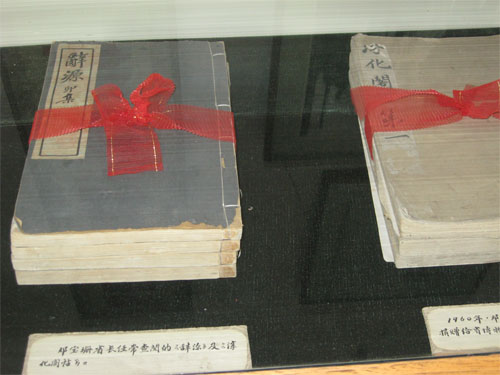 辭源
卯集
淳化閣
一
邓宝珊省长经常查阅的《辞源》及《淳
化阁帖》。
1960年,邓
捐赠给省博